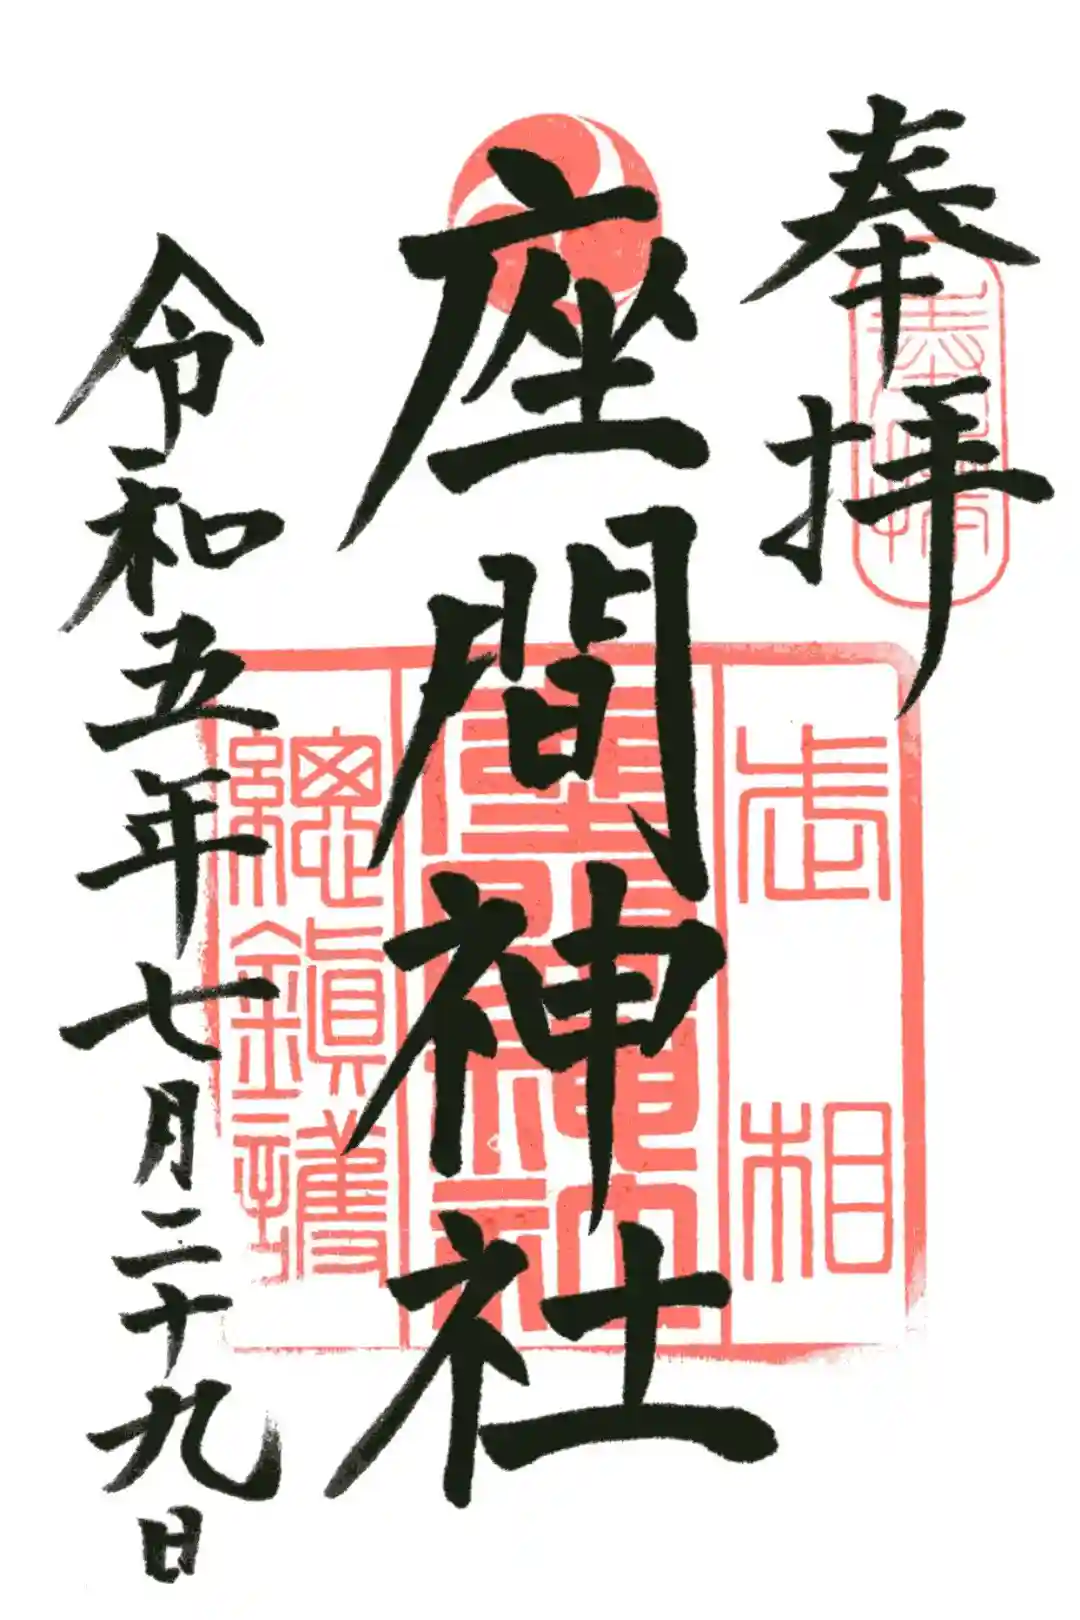 奉拝
奉拝
座間神社
武相
座間神社
總鎮護
令和五年七月二十九日